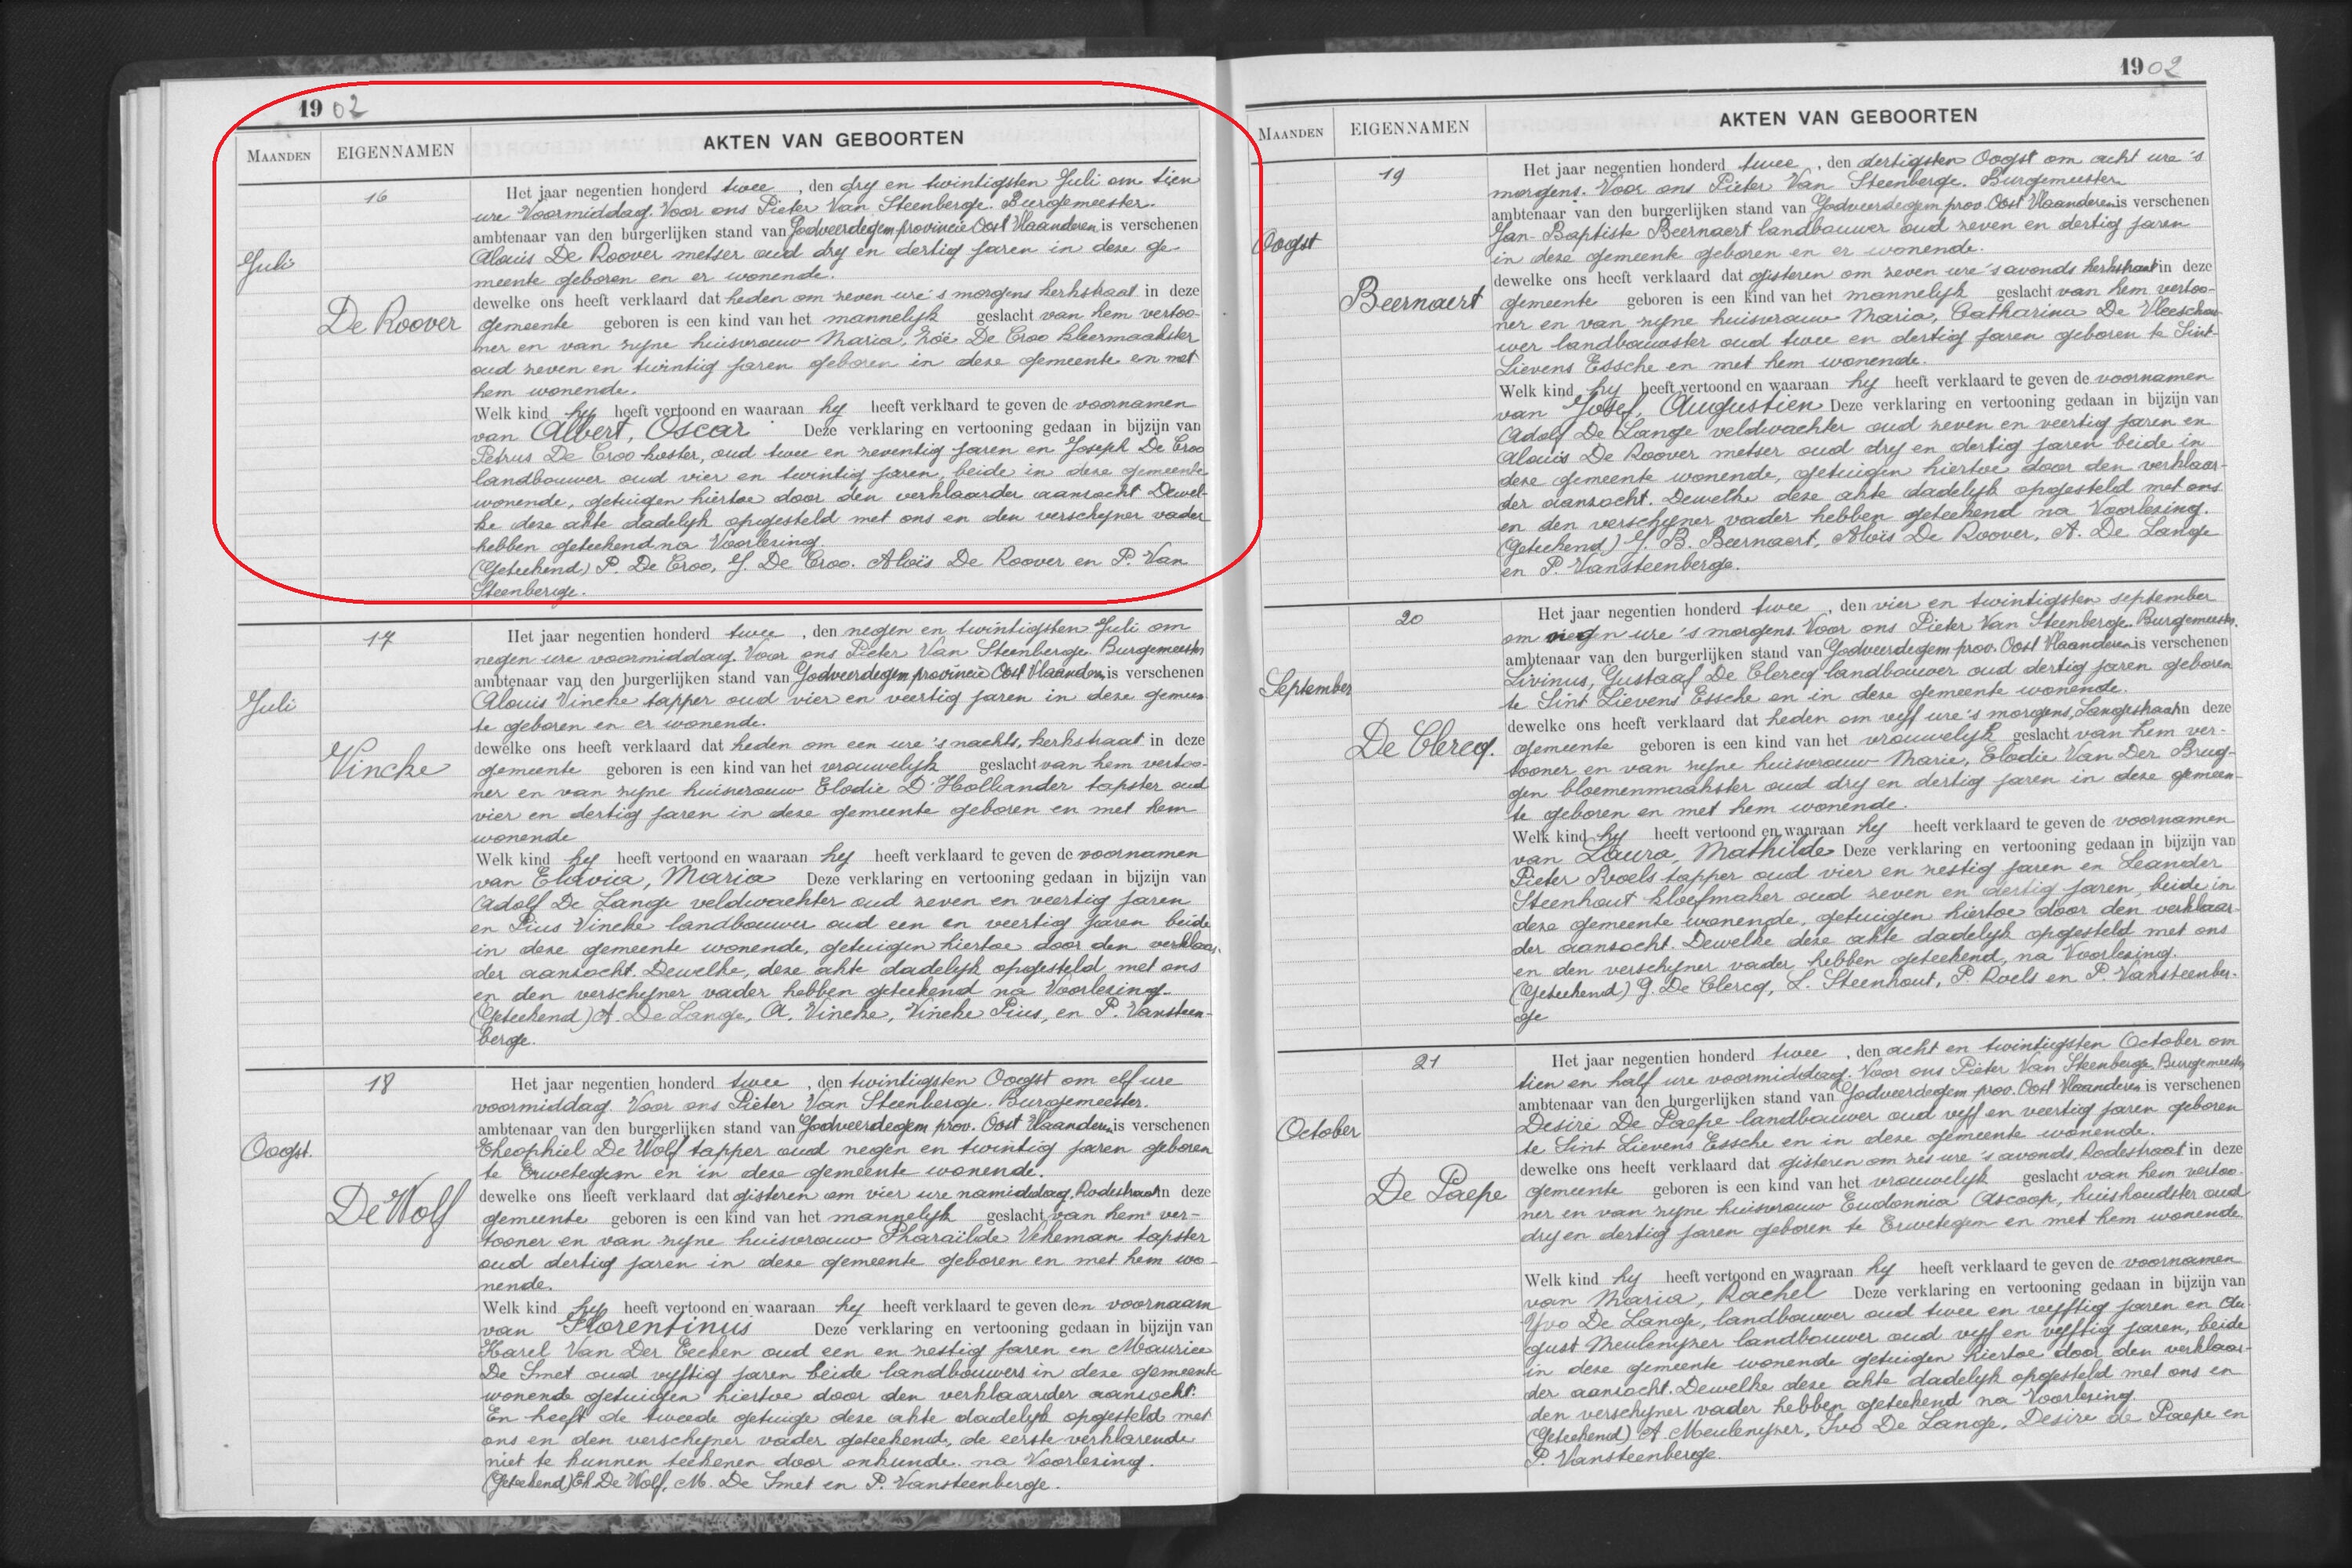 1902
MAANDEN
EIGENNAMEN
AKTEN VAN GEBOORTEN
16
Juli
De Roover
Het jaar negentien honderd twee , den dry en twintigsten Juli om tien
ure Voormiddag. Voor ons Pieter Van Steenberge. Burgemeester.
ambtenaar van den burgerlijken stand van Godveerdegem provincie Oost Vlaanderen is verschenen
Aloïs De Roover metser oud dry en dertig jaren in deze ge
meente geboren en er wonende.
dewelke ons heeft verklaard dat heden om zeven ure 's morgens kerkstraat in deze
gemeente geboren is een kind van het mannelyk geslacht van hem vertoo-
ner en van zyne huisvrouw Maria, Zoë De Croo kleermaakster
oud zeven en twintig jaren geboren in deze gemeente en met
hem wonende.
Welk kind hy heeft vertoond en waaraan hy heeft verklaard te geven de voornamen
van Albert, Oscar Deze verklaring en vertooning gedaan in bijzijn van
Petrus De Croo koster, oud twee en zeventig jaren en Joseph De Croo
landbouwer oud vier en twintig jaren, beide in deze gemeente
wonende, getuigen hiertoe door den verklaarder aanzocht Dewel-
ke deze akte dadelyk opgesteld met ons en den verschyner vader
hebben geteekend na Voorlezing.
(Geteekend) P. De Croo, J. De Croo. Aloïs De Roover en P. Van
Steenberge.
17
Juli
Vincke
Het jaar negentien honderd twee , den negen en twintigsten Juli om
negen ure voormiddag. Voor ons Pieter Van Steenberge. Burgemeester
ambtenaar van den burgerlijken stand van Godveerdegem provincie Oost Vlaanderen is verschenen
Aloïs Vincke tapper oud vier en veertig jaren in deze gemeen
te geboren en er wonende.
dewelke ons heeft verklaard dat heden om een ure 's nachts, kerkstraat in deze
gemeente geboren is een kind van het vrouwelyk geslacht van hem vertoo-
ner en van zyne huisvrouw Elodie D'Hollander tapster oud
vier en dertig jaren in deze gemeente geboren en met hem
wonende
Welk kind hy heeft vertoond en waaraan hy heeft verklaard te geven de voornamen
van Elavia, Maria Deze verklaring en vertooning gedaan in bijzijn van
Adolf De Lange veldwachter oud zeven en veertig jaren
en Pius Vincke landbouwer oud een en veertig jaren beide
in deze gemeente wonende, getuigen hiertoe door den verklaar-
der aanzocht. Dewelke, deze akte dadelyk opgesteld met ons
en den verschyner vader hebben geteekend na Voorlezing.
(Geteekend) A. De Lange, A. Vincke, Vincke Pius, en P. Vansteen-
berge.
18
Oogst.
De Wolf
Het jaar negentien honderd twee , den twintigsten Oogst om elf ure
voormiddag. Voor ons Pieter Van Steenberge. Burgemeester.
ambtenaar van den burgerlijken stand van Godveerdegem prov. Oost Vlaanderen is verschenen
Theophiel De Wolf tapper oud negen en twintig jaren geboren
te Erwetegem en in deze gemeente wonende.
dewelke ons heeft verklaard dat gisteren om vier ure namiddag, Rodestraat in deze
gemeente geboren is een kind van het mannelyk geslacht van hem ver-
tooner en van zyne huisvrouw Pharaïlde Vekeman tapster
oud dertig jaren in deze gemeente geboren en met hem wo-
nende.
Welk kind hy heeft vertoond en waaraan hy heeft verklaard te geven den voornaam
van Florentinus Deze verklaring en vertooning gedaan in bijzijn van
Karel Van Der Eecken oud een en zestig jaren en Maurice
De Smet oud vyftig jaren beide landbouwers in deze gemeente
wonende getuigen hiertoe door den verklaarder aanzocht.
En heeft de tweede getuige deze akte dadelyk opgesteld met
ons en den verschyner vader geteekend, de eerste verklarende
niet te kunnen teekenen door onkunde. na Voorlezing.
(Geteekend) Th De Wolf, M. De Smet en P. Vansteenberge.
1902
MAANDEN
EIGENNAMEN
AKTEN VAN GEBOORTEN
19
Oogst
Beernaert
Het jaar negentien honderd twee , den dertigsten Oogst om acht ure 's
morgens. Voor ons Pieter Van Steenberge. Burgemeester
ambtenaar van den burgerlijken stand van Godveerdegem prov. Oost Vlaanderen is verschenen
Jan-Baptiste Beernaert landbouwer oud zeven en dertig jaren
in deze gemeente geboren en er wonende.
dewelke ons heeft verklaard dat gisteren om zeven ure 's avonds kerkstraat in deze
gemeente geboren is een kind van het mannelyk geslacht van hem vertoo-
ner en van zyne huisvrouw Maria, Catharina De Vleeschou-
wer landbouwster oud twee en dertig jaren geboren te Sint-
Lievens Essche en met hem wonende.
Welk kind hy heeft vertoond en waaraan hy heeft verklaard te geven de voornamen
van Jozef, Augustien Deze verklaring en vertooning gedaan in bijzijn van
Adolf De Lange veldwachter oud zeven en veertig jaren en
Aloïs De Roover metser oud dry en dertig jaren beide in
deze gemeente wonende, getuigen hiertoe door den verklaar-
der aanzocht. Dewelke deze akte dadelyk opgesteld met ons
en den verschyner vader hebben geteekend na Voorlezing.
(Geteekend) J. B. Beernaert, Aloïs De Roover, A. De Lange
en P. Vansteenberge.
20
September
De Clercq.
Het jaar negentien honderd twee , den vier en twintigsten september
om negen ure 's morgens. Voor ons Pieter Van Steenberge. Burgemeester.
ambtenaar van den burgerlijken stand van Godveerdegem prov. Oost Vlaanderen is verschenen
Livinus, Gustaaf De Clercq landbouwer oud dertig jaren geboren
te Sint Lievens Essche en in deze gemeente wonende.
dewelke ons heeft verklaard dat heden om vyf ure 's morgens, Langestraat in deze
gemeente geboren is een kind van het vrouwelyk geslacht van hem ver-
tooner en van zyne huisvrouw Marie, Elodie Van Der Brug-
gen bloemenmaakster oud dry en dertig jaren in deze gemeen-
te geboren en met hem wonende.
Welk kind hy heeft vertoond en waaraan hy heeft verklaard te geven de voornamen
van Laura, Mathilde Deze verklaring en vertooning gedaan in bijzijn van
Pieter Roels tapper oud vier en zestig jaren en Leander
Steenhout kloefmaker oud zeven en dertig jaren, beide in
deze gemeente wonende, getuigen hiertoe door den verklaar-
der aanzocht. Dewelke deze akte dadelyk opgesteld met ons
en den verschyner vader hebben geteekend, na Voorlezing.
(Geteekend) G. De Clercq, L. Steenhout, P. Roels en P. Vansteenber-
ge
21
October
De Paepe
Het jaar negentien honderd twee , den acht en twintigsten October om
tien en half ure voormiddag. Voor ons Pieter Van Steenberge. Burgemeester
ambtenaar van den burgerlijken stand van Godveerdegem prov. Oost Vlaanderen is verschenen
Desiré De Paepe landbouwer oud vyf en veertig jaren geboren
te Sint Lievens Essche en in deze gemeente wonende.
dewelke ons heeft verklaard dat gisteren om zes ure 's avonds, Rodestraat in deze
gemeente geboren is een kind van het vrouwelyk geslacht van hem vertoo-
ner en van zyne huisvrouw Eudonnia Ascoop, huishoudster oud
dry en dertig jaren geboren te Erwetegem en met hem wonende.
Welk kind hy heeft vertoond en waaraan hy heeft verklaard te geven de voornamen
van Maria, Rachel Deze verklaring en vertooning gedaan in bijzijn van
Yvo De Lange, landbouwer oud twee en vyftig jaren en Au-
gust Meulenyzer landbouwer oud vyf en vyftig jaren, beide
in deze gemeente wonende getuigen hiertoe door den verklaar-
der aanzocht. Dewelke deze akte dadelyk opgesteld met ons en
den verschyner vader hebben geteekend na Voorlezing
(Geteekend) A Meulenyzer, Ivo De Lange, Desire de Paepe en
P. Vansteenberge.